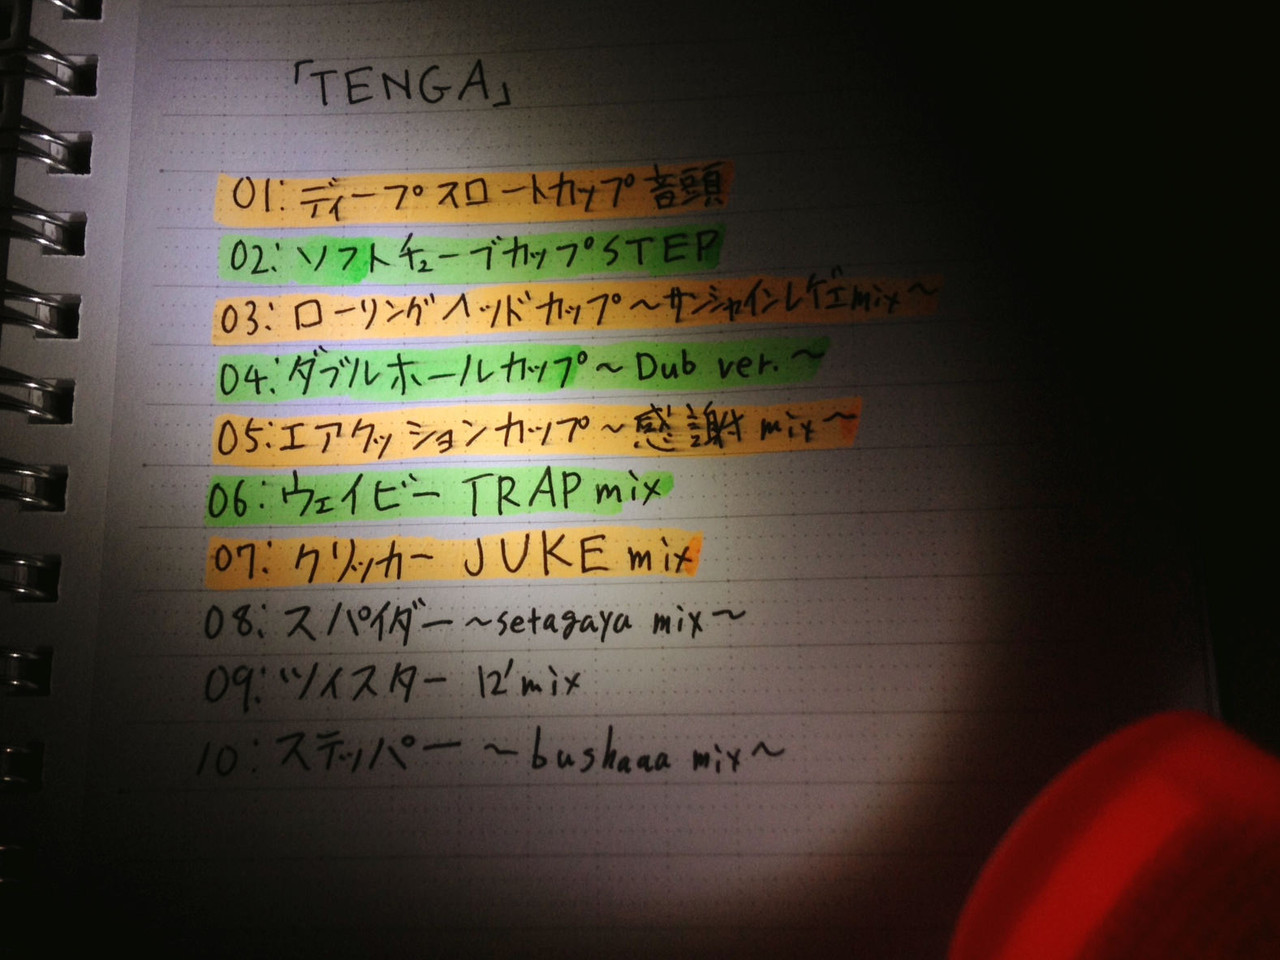 「TENGA」
01:ディープスロートカップ音頭
02:ソフトチューブカップSTEP
03:ローリングヘッドカップ～サンシャインレゲエmix～
04:ダブルホールカップ～Dub ver.～
05:エアクッションカップ～感謝mix～
06:ウェイビー TRAP mix
07:クリッカー JUKE mix
08:スパイダー～setagaya mix～
09:ツイスター 12'mix
10:ステッパー～bushaaa mix～